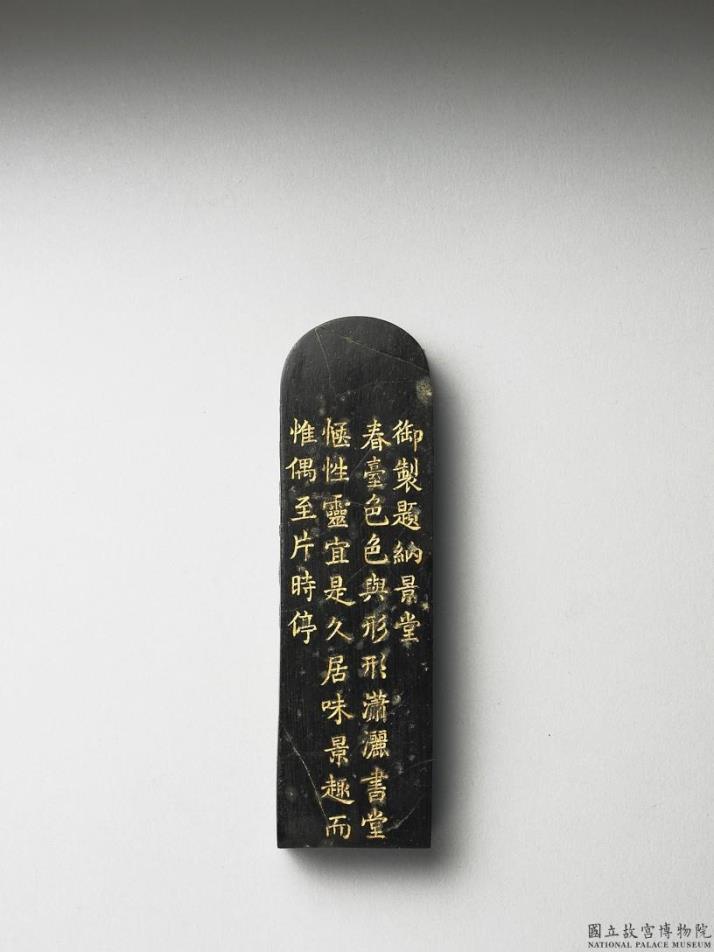 御製題納景堂
春臺色色與形形瀟灑書堂
愜性靈宜是久居味景趣而
惟偶至片時停
國立故宮博物院
NATIONAL PALACE MUSEUM